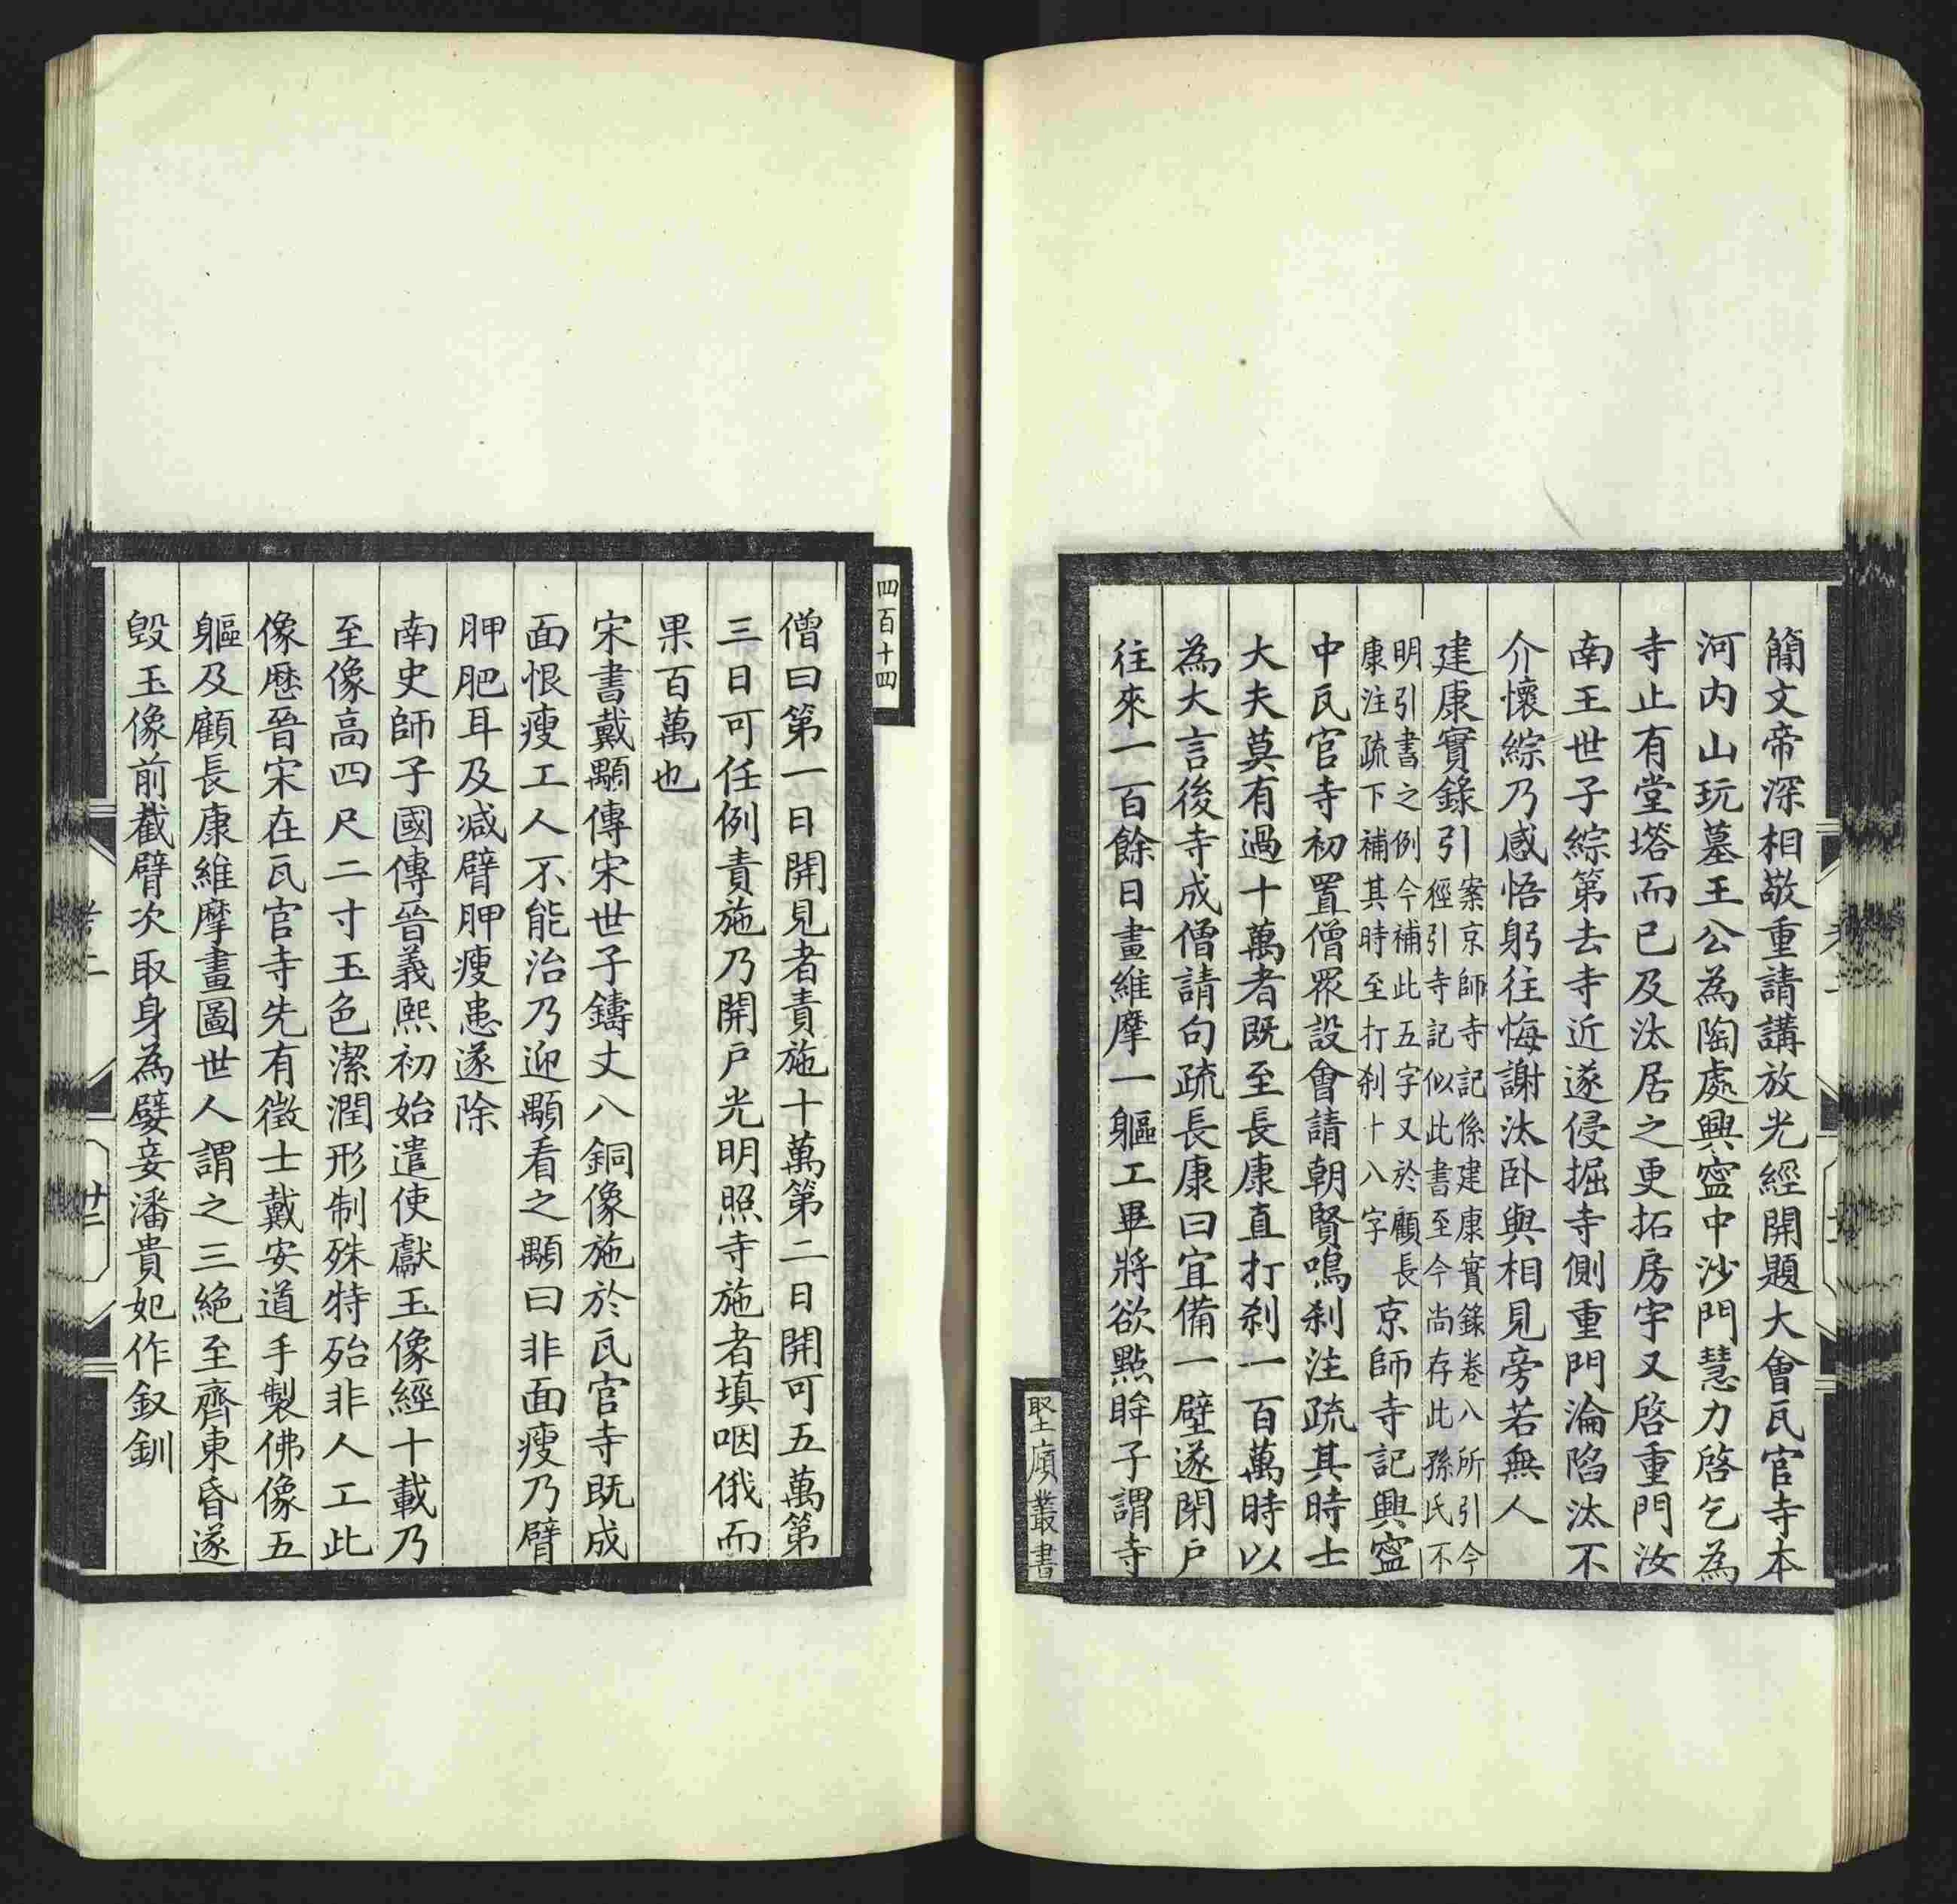 簡文帝深相敬重請講放光經開題大會瓦官寺本
河内山玩墓王公為陶處興寧中沙門慧力啓乞為
寺止有堂塔而已及汰居之更拓房宇又啓重門汝
南王世子綜第去寺近遂侵掘寺側重門淪陷汰不
介懷綜乃感悟躬往悔謝汰卧與相見旁若無人
建康實錄引案京師寺記係建康實錄卷八所引今
徑引寺記似此書至今尚存此孫氏不
明引書之例今補此五字又於顧長
康注疏下補其時至打刹十八字京師寺記興寧
中瓦官寺初置僧眾設會請朝賢鳴刹注疏其時士
大夫莫有過十萬者既至長康直打刹一百萬時以
為大言後寺成僧請句疏長康曰宜備一壁遂閉戶
往來一百餘日畫維摩一軀工畢將欲點眸子謂寺
堅廎叢書
四百十四
僧曰第一日開見者責施十萬第二日開可五萬第
三日可任例責施乃開戶光明照寺施者填咽俄而
果百萬也
宋書戴顒傳宋世子鑄丈八銅像施於瓦官寺既成
面恨瘦工人不能治乃迎顒看之顒曰非面瘦乃臂
胛肥耳及減臂胛瘦患遂除
南史師子國傳晉義熙初始遣使獻玉像經十載乃
至像高四尺二寸玉色潔潤形制殊特殆非人工此
像歷晉宋在瓦官寺先有徵士戴安道手製佛像五
軀及顧長康維摩畫圖世人謂之三絕至齊東昏遂
毀玉像前截臂次取身為嬖妾潘貴妃作釵釧